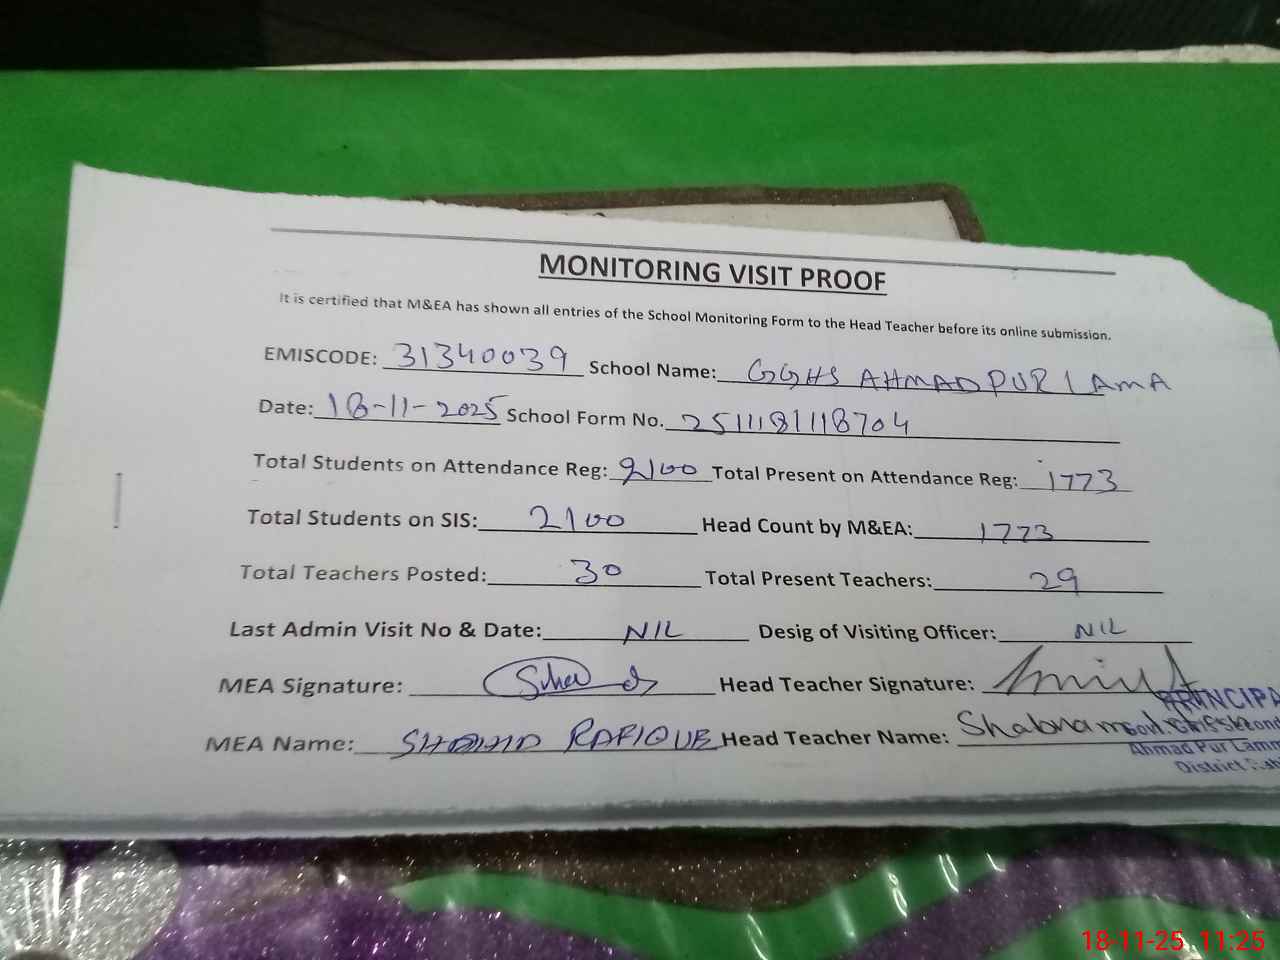 MONITORING VISIT PROOF
It is certified that M&EA has shown all entries of the School Monitoring Form to the Head Teacher before its online submission.
EMISCODE: 31340039 School Name: GGHS AHMADPUR LAMA
Date: 18-11-2025 School Form No. 2511181118704
Total Students on Attendance Reg: 2100 Total Present on Attendance Reg: 1773
Total Students on SIS: 2100 Head Count by M&EA: 1773
Total Teachers Posted: 30 Total Present Teachers: 29
Last Admin Visit No & Date: NIL Desig of Visiting Officer: NIL
MEA Signature: Head Teacher Signature:
PRINCIPA
MEA Name: SHAHID RAFIQUE Head Teacher Name: Shabnam
Govt. Girls
Ahmad Pur Lamm
District
18-11-25 11:25